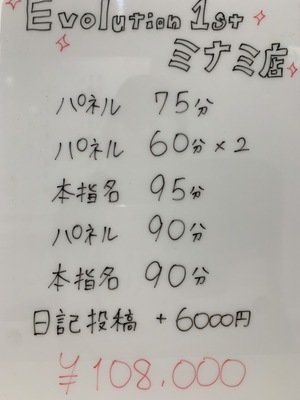 Evolution 1st
ミナミ店
パネル 75分
パネル 60分×2
本指名 95分
パネル 90分
本指名 90分
日記投稿 +6000円
¥108.000